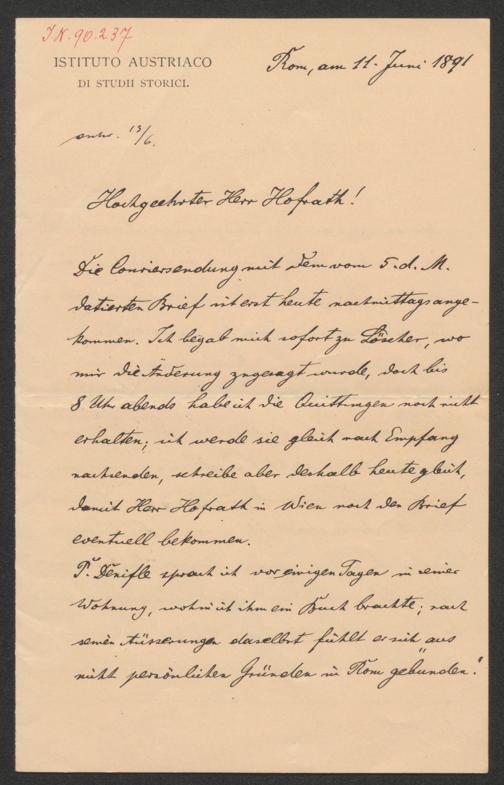 I.N. 90.237
ISTITUTO AUSTRIACO
DI STUDII STORICI.
Rom, am 11. Juni 1891
antw. 13/6.
Hochgeehrter Herr Hofrath!
Die Couriersendung mit dem vom 5. d. M.
datierten Brief ist erst heute nachmittags ange-
kommen. Ich begab mich sofort zu Löscher, wo
mir die Änderung zugesagt wurde, doch bis
8 Uhr abends habe ich die Quittungen noch nicht
erhalten; ich werde sie gleich nach Empfang
nachsenden, schreibe aber deshalb heute gleich,
damit Herr Hofrath in Wien noch den Brief
eventuell bekommen.
P. Denifle sprach ich vor einigen Tagen in seiner
Wohnung, wohin ich ihm ein Buch brachte; nach
seinen Äusserungen daselbst fühlt er sich „aus
nicht persönlichen Gründen in Rom gebunden."